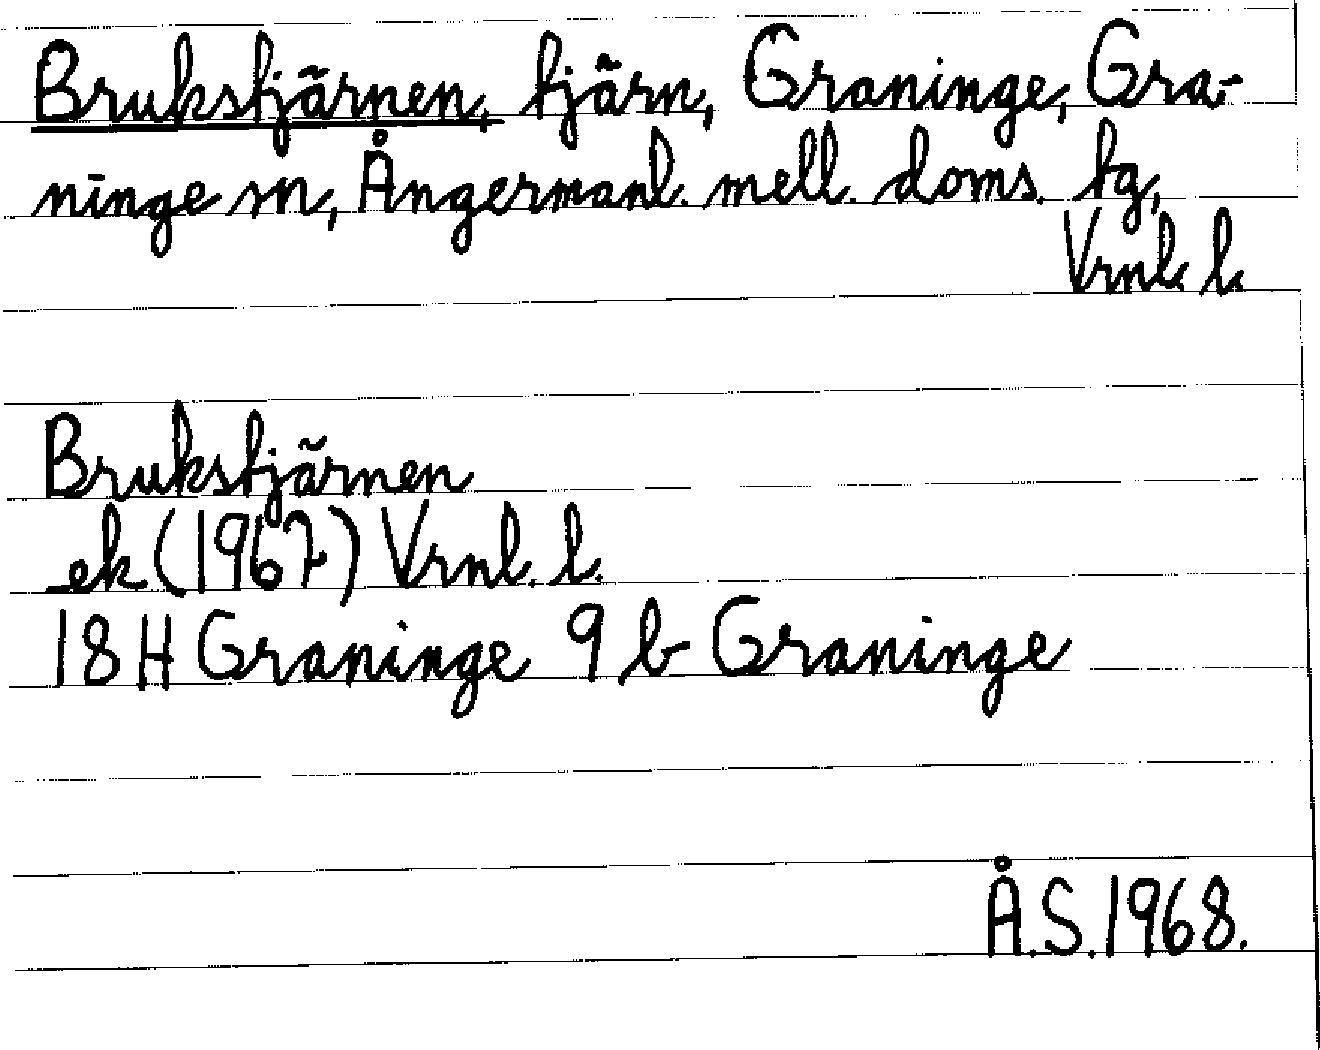 Brukstjärnen, tjärn, Graninge, Gra-
ninge sn, Ångermanl. mell. doms. tg,
Vrnl. l.
Brukstjärnen
ek (1967) Vrnl. l.
18 H Graninge 9 b Graninge
Å.S. 1968.